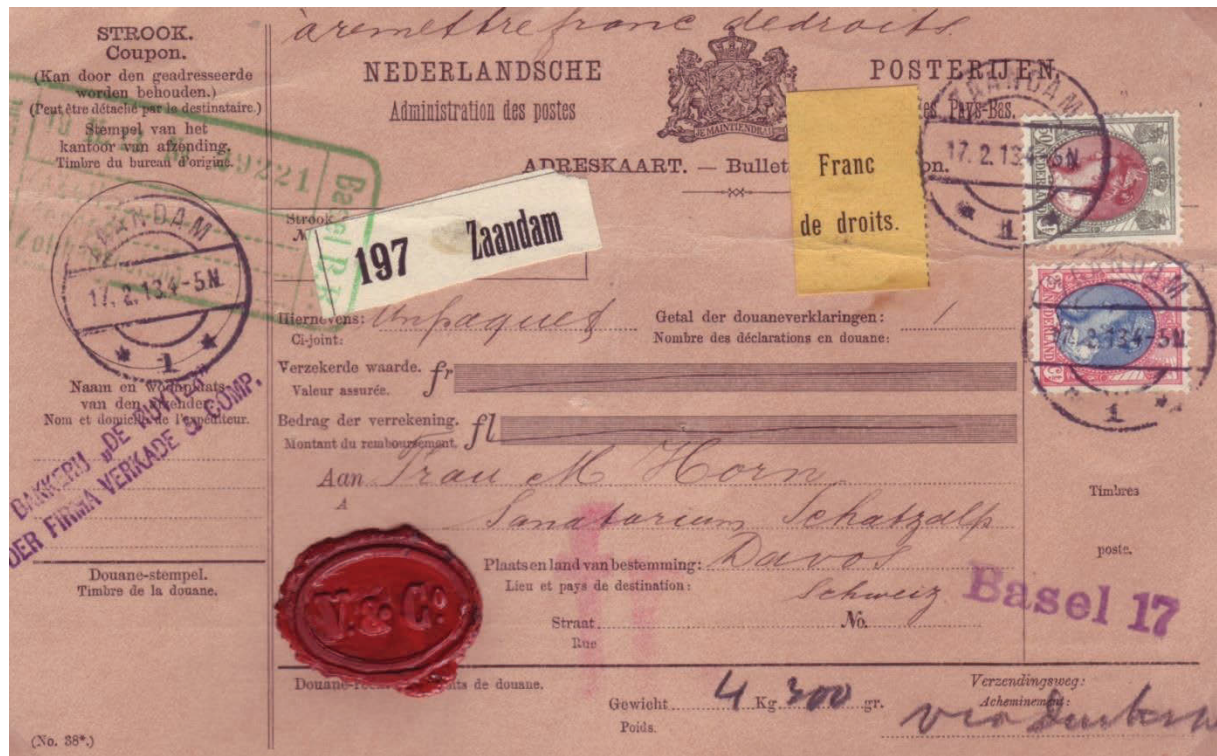 STROOK.
Coupon.
(Kan door den geadresseerde
worden behouden.)
(Peut être détaché par le destinataire.)
Stempel van het
kantoor van afzending.
Timbre du bureau d'origine.
ZAANDAM
17.2.13.4-5N.
1
Naam en woonplaats
van den afzender.
Nom et domicile de l'expéditeur.
BAKKERIJ „DE RUYTER"
DER FIRMA VERKADE & COMP.
Douane-stempel.
Timbre de la douane.
(No. 38*.)
à remettre franc de droits.
NEDERLANDSCHE POSTERIJEN.
Administration des postes des Pays-Bas.
JE MAINTIENDRAI
ADRESKAART. — Bullet on.
Franc
de droits.
Strook
197 Zaandam
99221
Basel
ZAANDAM
17.2.13.4-5N
1
NEDERLAND
ZAANDAM
17.2.13.4-5N.
1
NEDERLAND
Hiernevens: Un paquet Getal der douaneverklaringen: 1
Ci-joint: Nombre des déclarations en douane:
Verzekerde waarde. fr
Valeur assurée.
Bedrag der verrekening. fl
Montant du remboursement.
Aan Frau M Horn.
A
Sanatorium Schatzalp
Plaats en land van bestemming: Davos
Lieu et pays de destination: Schweiz
Straat No.
Rue
Timbres
poste.
Basel 17
V. & Co.
Douane- de douane.
Gewicht 4 Kg. 300 gr.
Poids.
Verzendingsweg:
Acheminement:
via